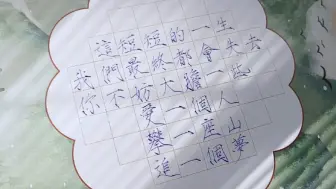 這短短的一生
我們最終都會失去
你不妨大膽一些
愛一個人
攀一座山
追一個夢